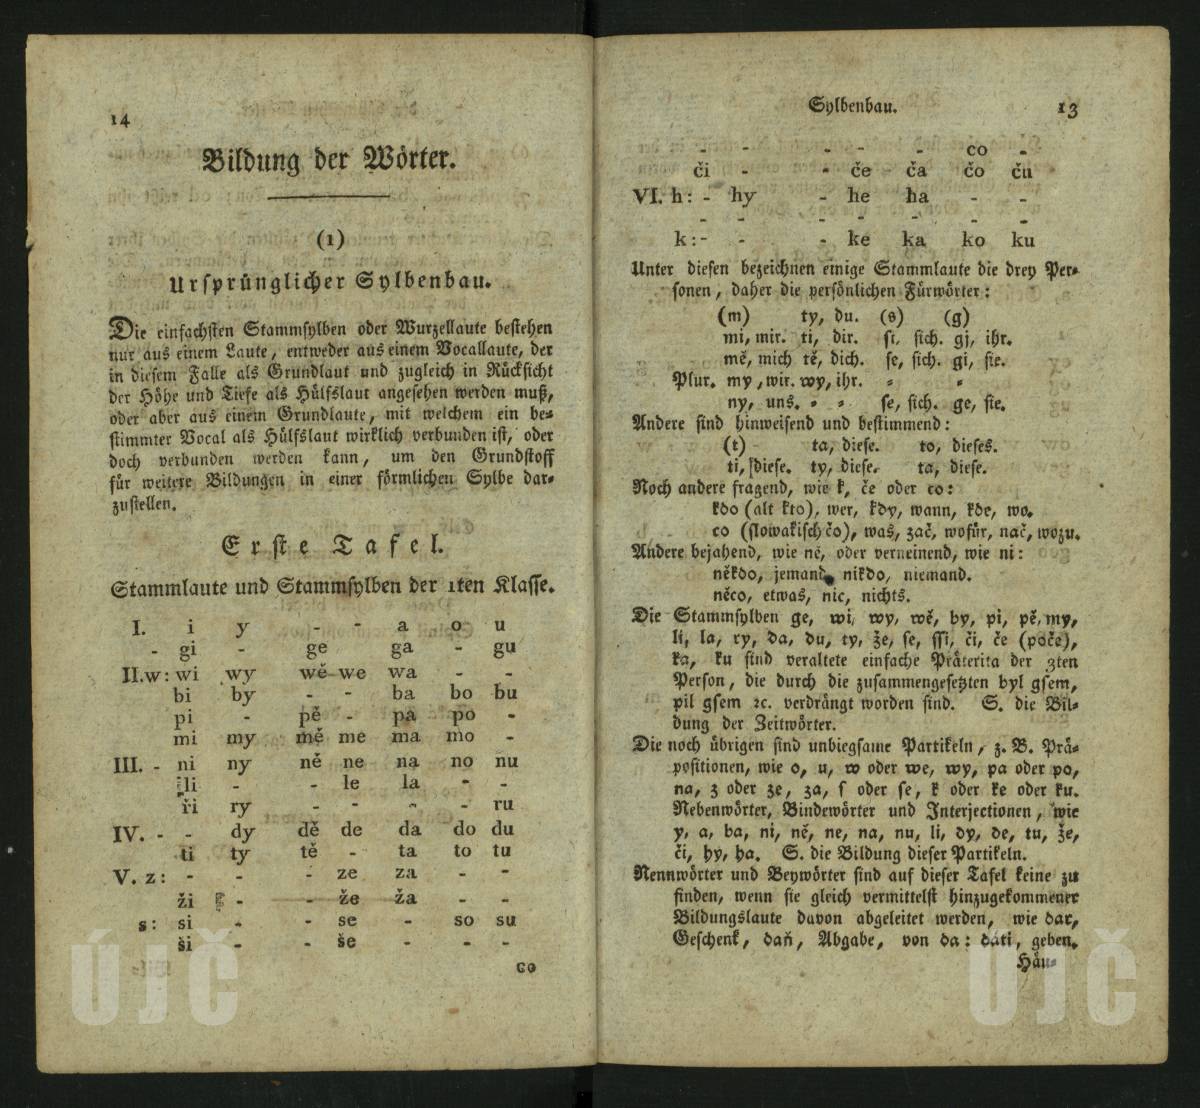 14
Bildung der Wörter.
(1)
Ursprünglicher Sylbenbau.
Die einfachsten Stammsylben oder Wurzellaute bestehen
nur aus einem Laute, entweder aus einem Vocallaute, der
in diesem Falle als Grundlaut und zugleich in Rücksicht
der Höhe und Tiefe als Hülfslaut angesehen werden muß,
oder aber aus einem Grundlaute, mit welchem ein be-
stimmter Vocal als Hülfslaut wirklich verbunden ist, oder
doch verbunden werden kann, um den Grundstoff
für weitere Bildungen in einer förmlichen Sylbe dar-
zustellen.
Erste Tafel.
Stammlaute und Stammsylben der 1ten Klasse.
I. i y - - a o u
- gi - ge ga - gu
II.w: wi wy wě we wa - -
bi by - - ba bo bu
pi - pě - pa po -
mi my mě me ma mo -
III. - ni ny ně ne na no nu
li - - le la - -
ři ry - - - - ru
IV. - - dy dě de da do du
ti ty tě - ta to tu
V. z: - - - ze za - -
ži - - že ža - -
s: si - - se - so su
ši - - še - - -
co
Sylbenbau. 13
- - - - - co -
či - - če ča čo ču
VI. h: - hy - he ha - -
- - - - - - -
k: - - - ke ka ko ku
Unter diesen bezeichnen einige Stammlaute die drey Per-
sonen, daher die persönlichen Fürwörter:
(m) ty, du. (s) (g)
mi, mir. ti, dir. si, sich. gj, ihr.
mě, mich tě, dich. se, sich. gi, sie.
Plur. my, wir. wy, ihr. - -
ny, uns. - - se, sich. ge, sie.
Andere sind hinweisend und bestimmend:
(t) ta, diese. to, dieses.
ti, diese. ty, diese. ta, diese.
Noch andere fragend, wie k, če oder co:
kdo (alt kto), wer, kdy, wann, kde, wo.
co (slowakisch čo), was, zač, wofür, nač, wozu.
Andere bejahend, wie ně, oder verneinend, wie ni:
někdo, jemand, nikdo, niemand.
něco, etwas, nic, nichts.
Die Stammsylben ge, wi, wy, wě, by, pi, pě, my,
li, la, ry, da, du, ty, že, se, ssi, či, če (poče),
ka, ku sind veraltete einfache Präterita der 3ten
Person, die durch die zusammengesetzten byl gsem,
pil gsem ꝛc. verdrängt worden sind. S. die Bil-
dung der Zeitwörter.
Die noch übrigen sind unbiegsame Partikeln, z. B. Prä-
positionen, wie o, u, w oder we, wy, pa oder po,
na, z oder ze, za, s oder se, k oder ke oder ku.
Nebenwörter, Bindewörter und Interjectionen, wie
y, a, ba, ni, ně, ne, na, nu, li, dy, de, tu, že,
či, hy, ha. S. die Bildung dieser Partikeln.
Nennwörter und Beywörter sind auf dieser Tafel keine zu
finden, wenn sie gleich vermittelst hinzugekommener
Bildungslaute davon abgeleitet werden, wie dar,
Geschenk, daň, Abgabe, von da: dáti, geben.
Häu-
ÚJČ
ÚJČ